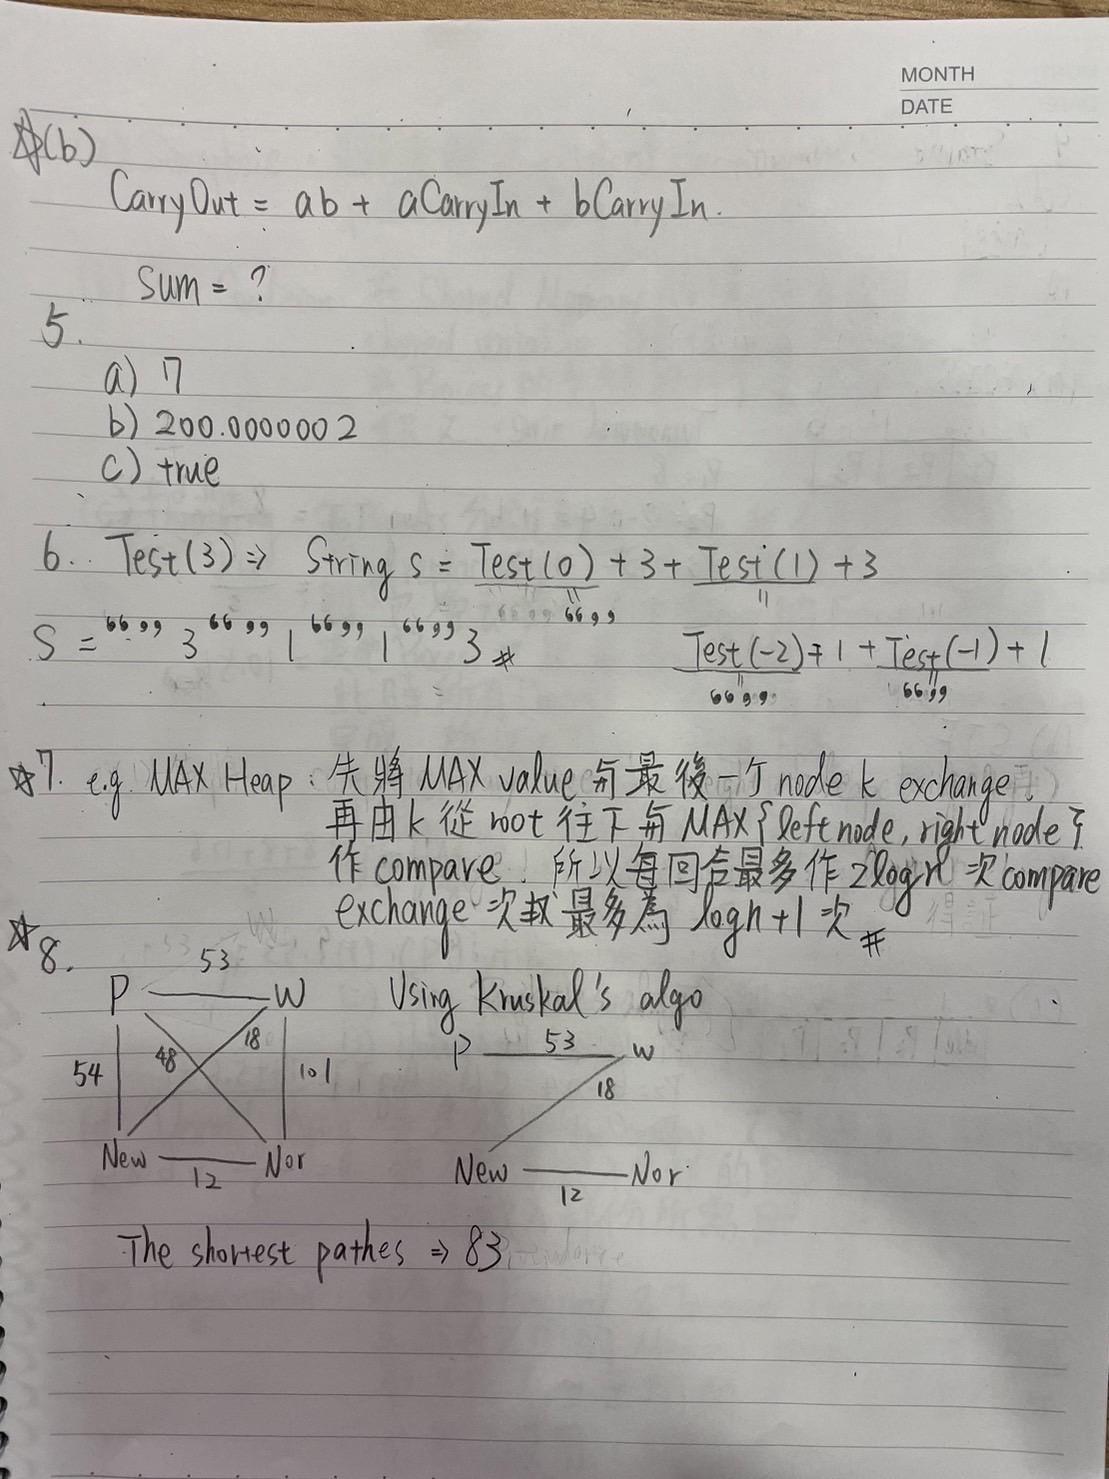 MONTH
DATE
☆(b)
CarryOut = ab + aCarryIn + bCarryIn.
Sum = ?
5.
a) 7
b) 200.0000002
c) true
6. Test(3) ⇒ String s = Test(0) + 3 + Test(1) + 3
" "
S = "" 3 "" 1 "" 1 "" 3 #
Test(-2) + 1 + Test(-1) + 1
"" ""
☆7. e.g. MAX Heap : 先將 MAX value 與最後一个 node k exchange,
再由 k 從 root 往下與 MAX{left node, right node}
作 compare. 所以每回合最多作 2logn 次 compare
exchange 次數最多為 logn+1 次 #
☆8.
P 53 W Using Kruskal's algo
P 53 W
54 48 18 101
18
New 12 Nor
New 12 Nor
The shortest pathes ⇒ 83